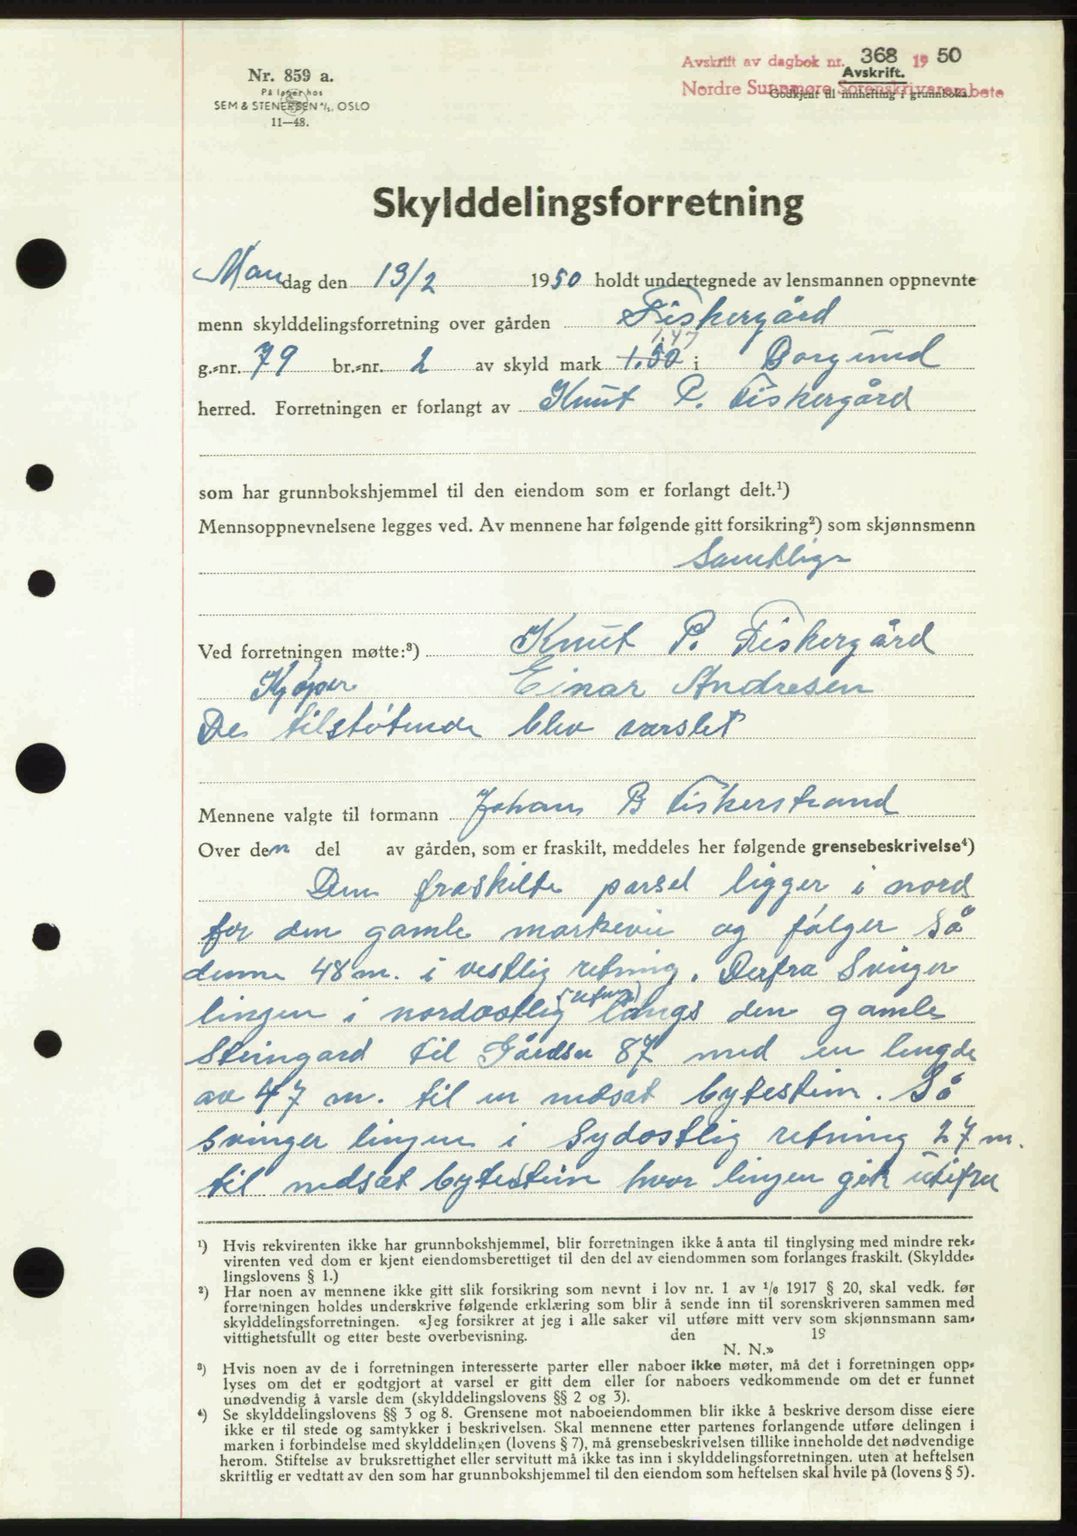 Nr. 859 a.
På lager hos
SEM & STENERSEN A/S, OSLO
11—48.
Avskrift av dagbok nr. 368 19 50
Avskrift.
Nordre Sunnmøre Sorenskrivarembete
Godkjent til innhefting i grunnboka.
Skylddelingsforretning
Mandag den 13/2 1950 holdt undertegnede av lensmannen oppnevnte
menn skylddelingsforretning over gården Fiskergård
1,47
g.-nr. 79 br.-nr. 2 av skyld mark 1.50 i Borgund
herred. Forretningen er forlangt av Knut P. Fiskergård
som har grunnbokshjemmel til den eiendom som er forlangt delt.¹)
Mennsoppnevnelsene legges ved. Av mennene har følgende gitt forsikring²) som skjønnsmenn
Samtlige
Ved forretningen møtte:³) Knut P. Fiskergård
Kjøper Einar Andresen
De tilstøtende blev varslet
Mennene valgte til formann Johans B Fiskerstrand
Over den del av gården, som er fraskilt, meddeles her følgende grensebeskrivelse⁴)
Den fraskilte parsel ligger i nord
for den gamle markevei og følger så
denne 48 m. i vestlig retning. Derfra svinger
linjen i nordostlig (retning) langs den gamle
steingard til Gårdsn 87 med en lengde
av 47 m. til en nedsat bytestein. Så
svinger linjen i sydostlig retning 27 m.
til nedsat bytestein hvor linjen gik utifra
¹) Hvis rekvirenten ikke har grunnbokshjemmel, blir forretningen ikke å anta til tinglysing med mindre rek-
virenten ved dom er kjent eiendomsberettiget til den del av eiendommen som forlanges fraskilt. (Skyldde-
lingslovens § 1.)
²) Har noen av mennene ikke gitt slik forsikring som nevnt i lov nr. 1 av 1/6 1917 § 20, skal vedk. før
forretningen holdes underskrive følgende erklæring som blir å sende inn til sorenskriveren sammen med
skylddelingsforretningen. «Jeg forsikrer at jeg i alle saker vil utføre mitt verv som skjønnsmann sam-
vittighetsfullt og etter beste overbevisning. den 19
N. N.»
³) Hvis noen av de i forretningen interesserte parter eller naboer ikke møter, må det i forretningen opp-
lyses om det er godtgjort at varsel er gitt dem eller for naboers vedkommende om det er funnet
unødvendig å varsle dem (skylddelingslovens §§ 2 og 3).
⁴) Se skylddelingslovens §§ 3 og 8. Grensene mot naboeiendommen blir ikke å beskrive dersom disse eiere
ikke er til stede og samtykker i beskrivelsen. Skal mennene etter partenes forlangende utføre delingen i
marken i forbindelse med skylddelingen (lovens § 7), må grensebeskrivelsen tillike inneholde det nødvendige
herom. Stiftelse av bruksrettighet eller servitutt må ikke tas inn i skylddelingsforretningen, uten at heftelsen
skriftlig er vedtatt av den som har grunnbokshjemmel til den eiendom som heftelsen skal hvile på (lovens § 5).